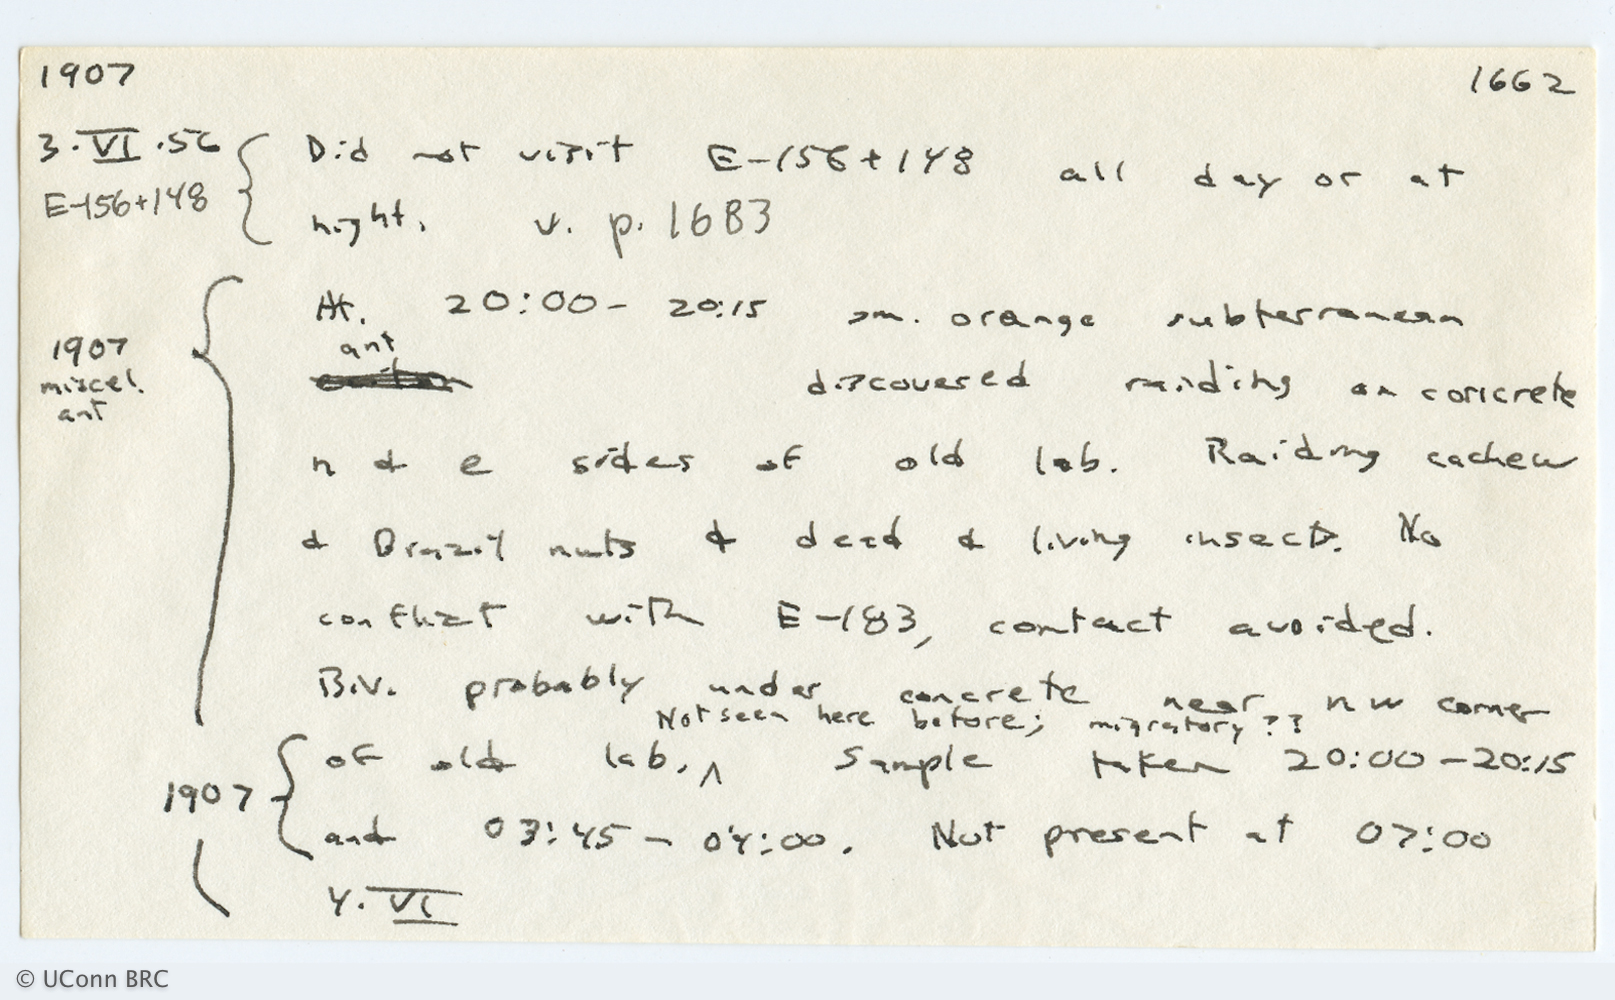 1907 1662
3.VI.56 Did not visit E-156+148 all day or at
E-156+148 night. v. p. 1683
At. 20:00- 20:15 sm. orange subterranean
ant
discovered raiding on concrete
1907
miscel.
ant
n & e sides of old lab. Raiding cachew
& Brazil nuts & dead & living insects. No
conflict with E-183, contact avoided.
Biv. probably under concrete near nw corner
Not seen here before; migratory??
of old lab. ^ Sample taken 20:00-20:15
1907
and 03:45 - 04:00. Not present at 07:00
4.VI
© UConn BRC